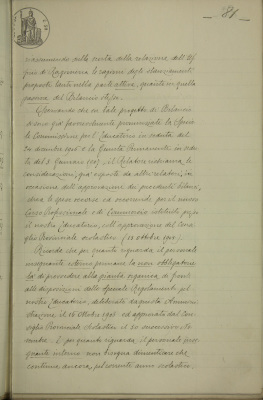 81
riassumendo nella scorta della relazione dell'Uf
ficio di Ragioneria le ragioni degli stanziamenti
proposti tanto nella parte attiva, quanto in quella
passiva del Bilancio stesso.
Premesso che su tale progetto di Bilancio
si sono già favorevolmente pronunziate la Specia
le Commissione per l'Educatorio in seduta del
30 dicembre 1905 e la Giunta Permanente in sedu
ta del 3 Gennaio 1907, il Relatore richiama le
considerazioni, già esposte da altri relatori, in
occasione dell'approvazione dei precedenti bilanci,
circa le spese occorse ed occorrende per il nuovo
Corso Professionale e di Commercio istituito presso
il nostro Educatorio, coll'approvazione del Con
siglio Provinciale scolastico
Ricorda che per quanto riguarda il personale
insegnante esterno permane la non obbligatorie
tà di provvedere alla pianta organica di fronte
alle disposizioni dello speciale Regolamento pel
nostro Educatorio, deliberato da questa Ammini
strazione il 16 Ottobre 1905 ed approvato dal Con
siglio Provinciale Scolastico il 20 successivo No
vembre. E per quanto riguarda il personale inse
gnante interno non bisogna dimenticare che
continua ancora, pel corrente anno scolastico,